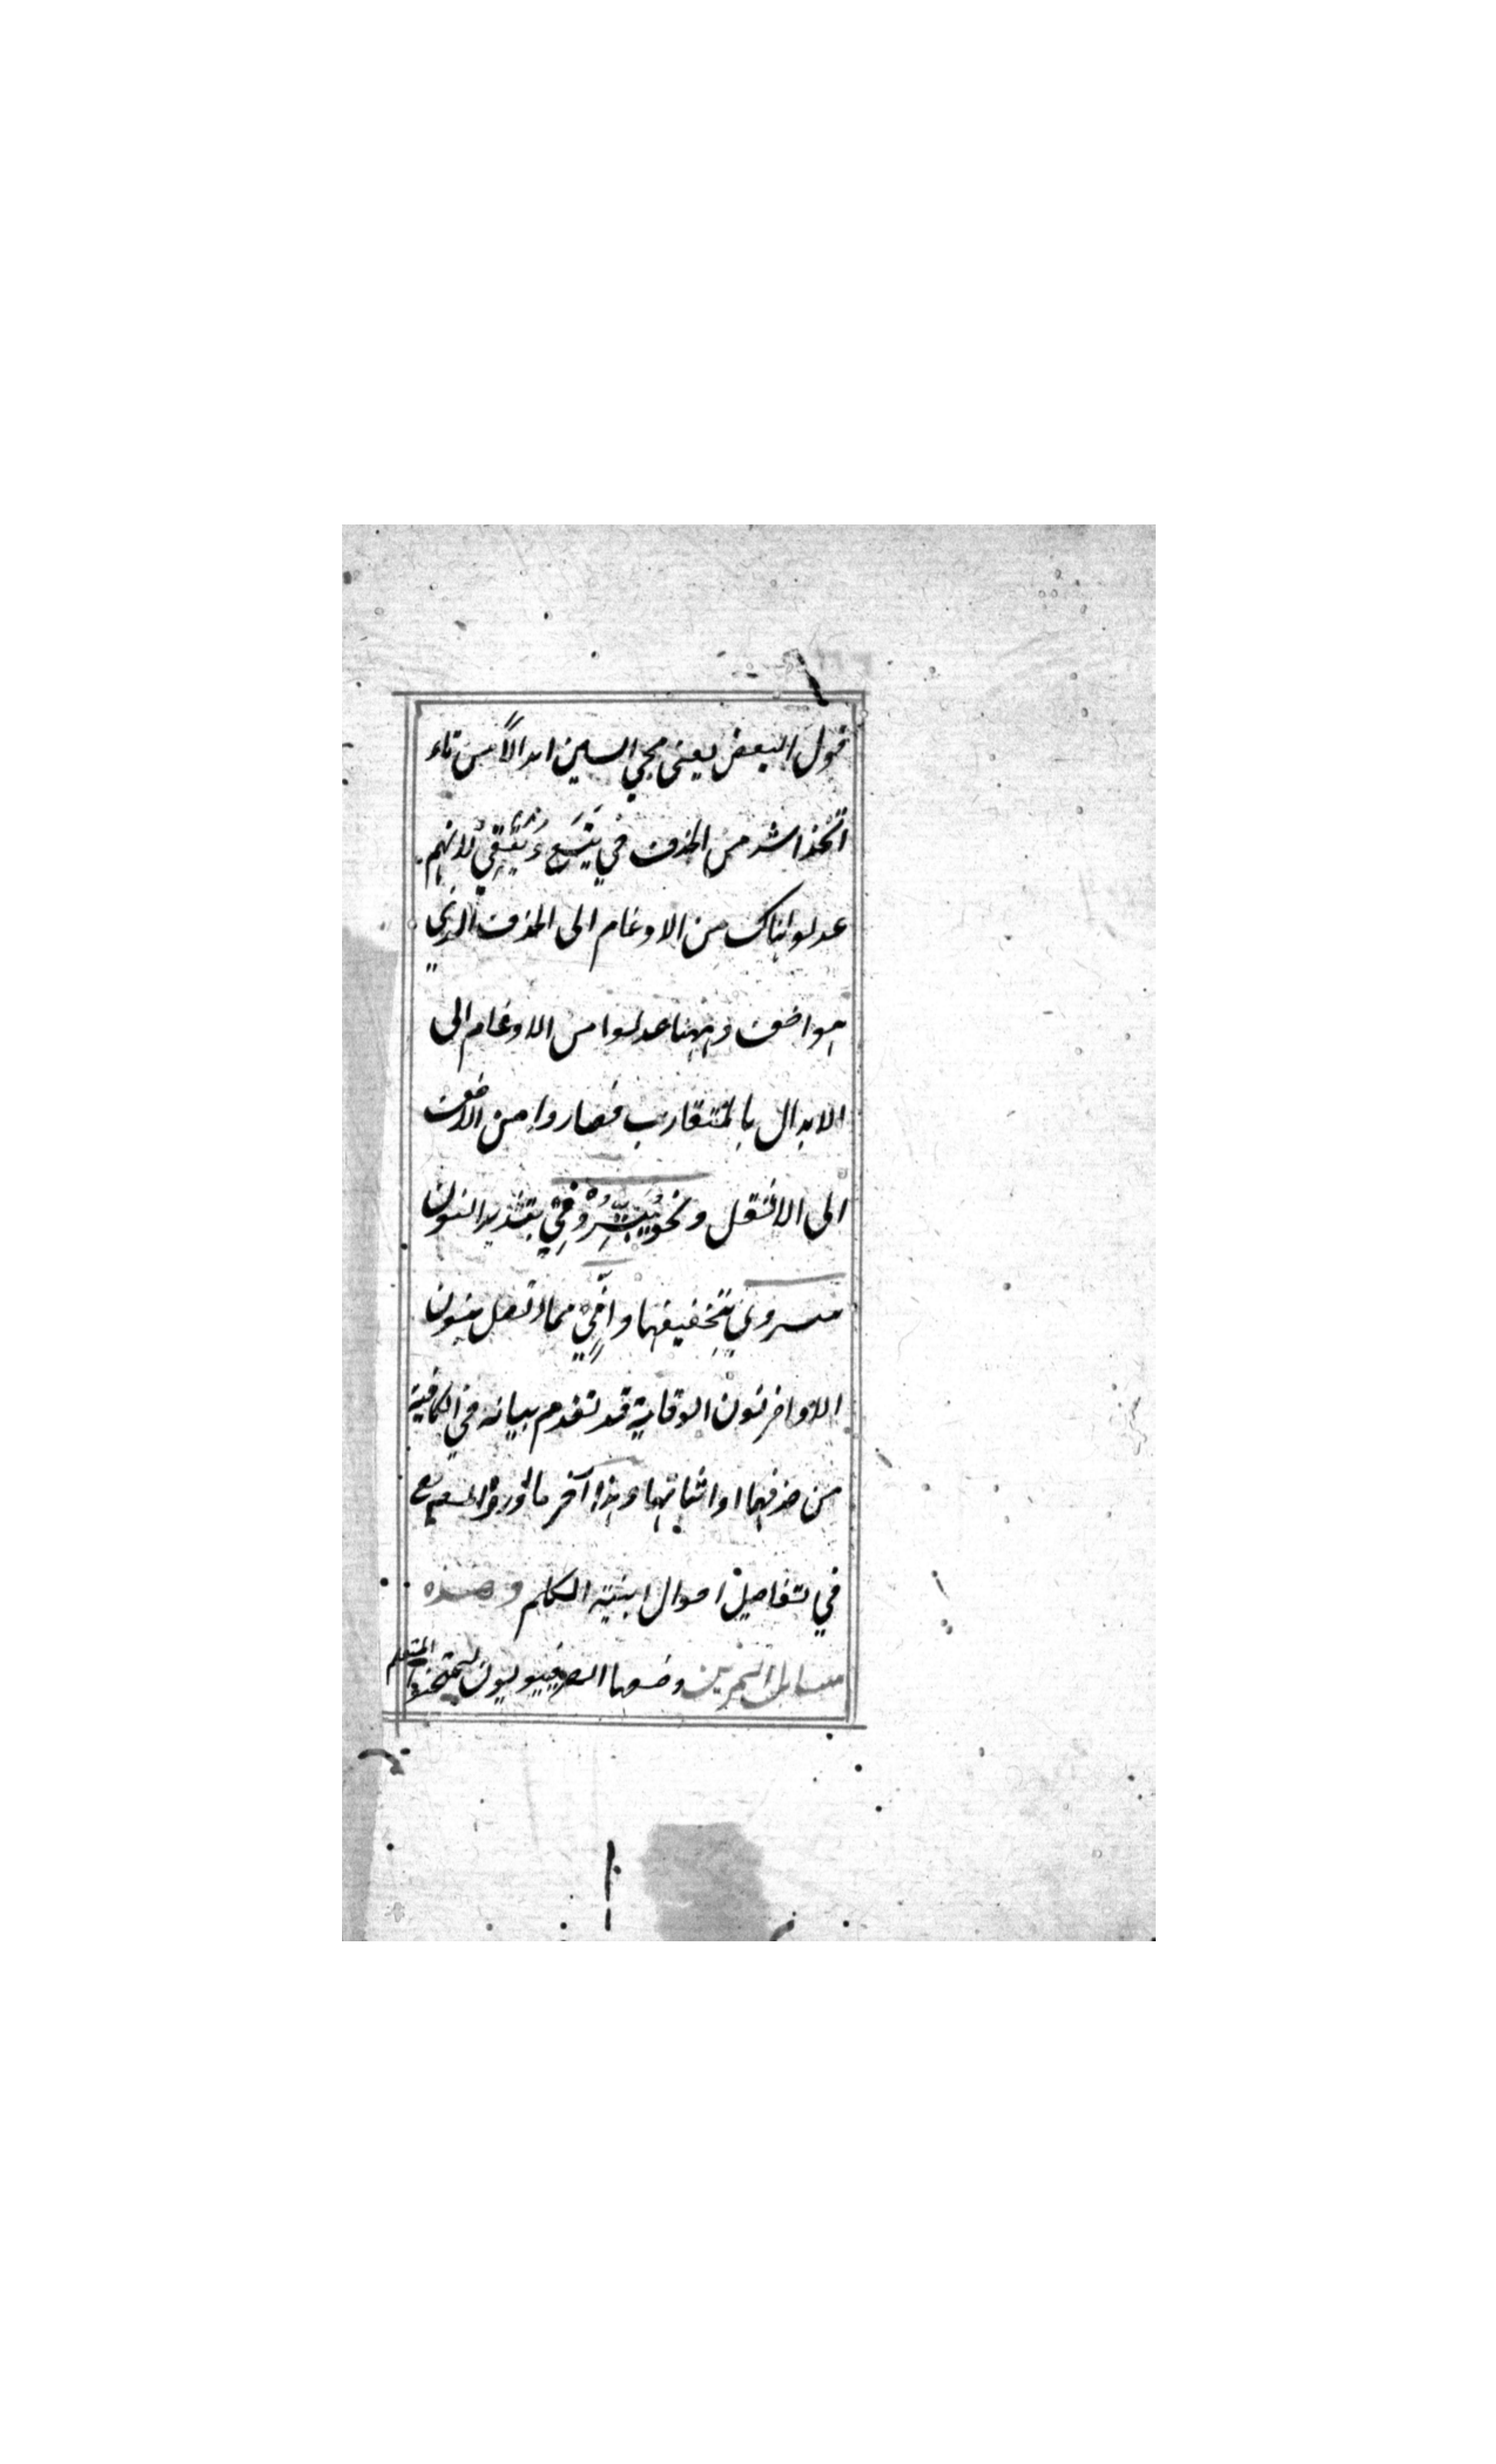 قول البعض يعنى مجي السين ابدالاً من تاء
اتخذ اشذ من الحذف في يَتَسِع وَ يَتَقِي لانهم
عدلوا هناك من الادغام الى الحذف الذي
هو اخف وههنا عدلوا من الادغام الى
الابدال بالمتقارب فصاروا من الاخف
الى الاثقل ونحو يُبَشِّرُوْنِيْ بتشديد النون
بتخفيفها وانِّيْ مما اتصل بنون
الاواخر نون الوقاية قد تقدم بيانه في الكافية
من حذفها او اثباتها وهذا آخر ما اورده المصنف
في تفاصيل احوال ابنية الكلم وهذه
مسايل التمرين وضعها ليمتحنوا المتعلم